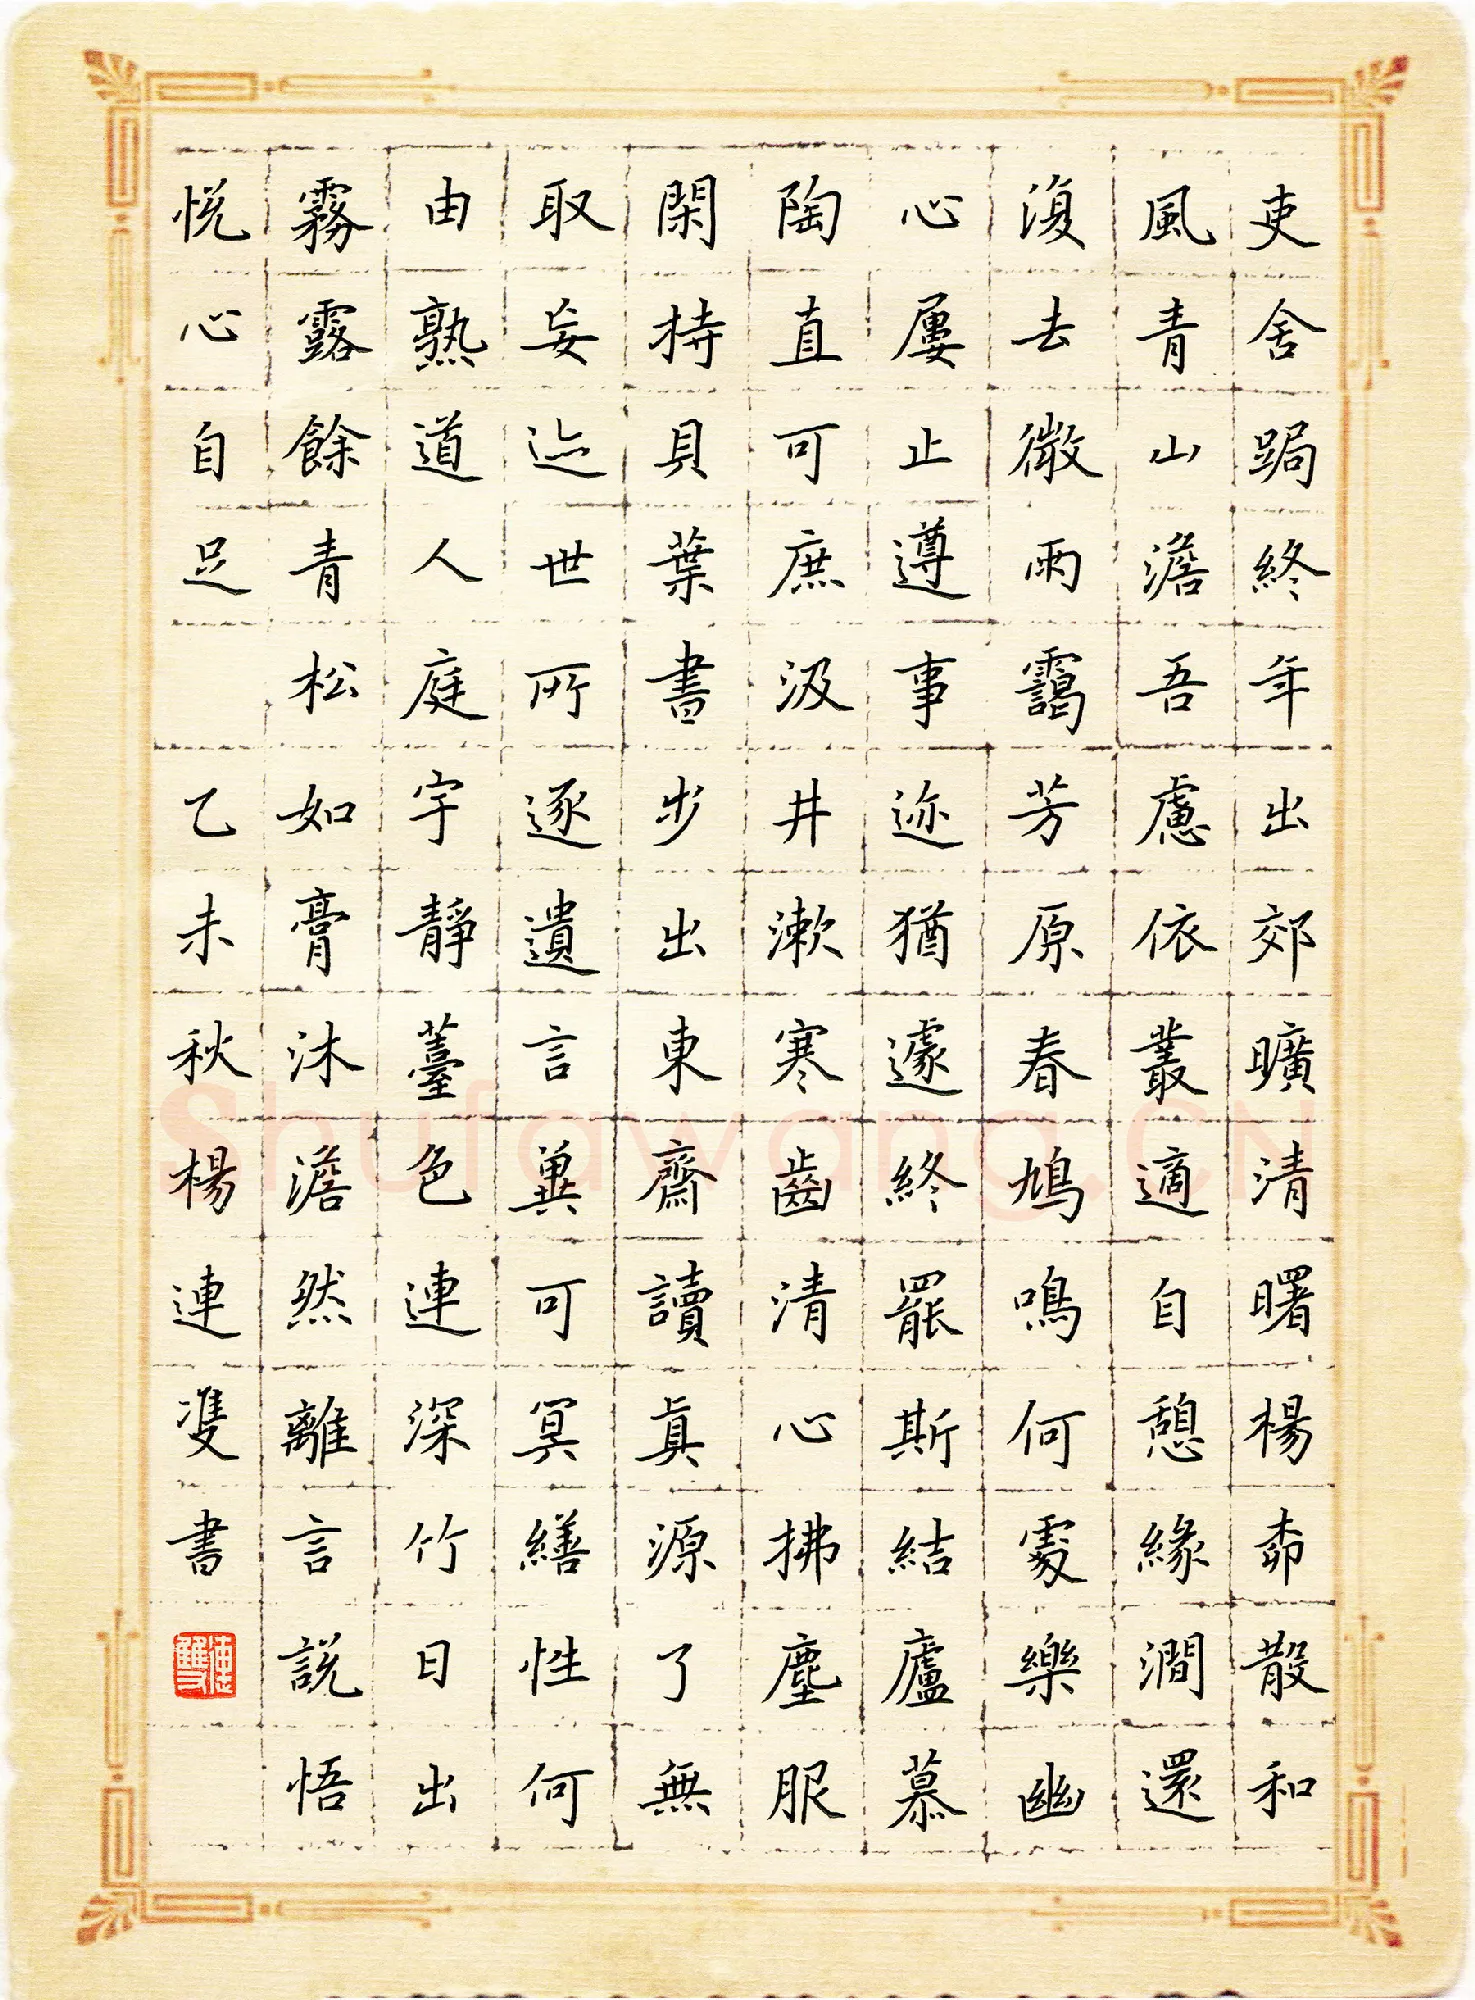 吏舍跼終年出郊曠清曙楊柳散和
風青山澹吾慮依叢適自憩緣澗還
復去微雨靄芳原春鳩鳴何處樂幽
心屢止遵事迹猶遽終罷斯結廬慕
陶直可庶汲井漱寒齒清心拂塵服
閑持貝葉書步出東齋讀真源了無
取妄迹世所逐遺言冀可冥繕性何
由熟道人庭宇靜薹色連深竹日出
霧露餘青松如膏沐澹然離言說悟
悅心自足
乙未秋楊連双書
連雙
Shufawang.CN